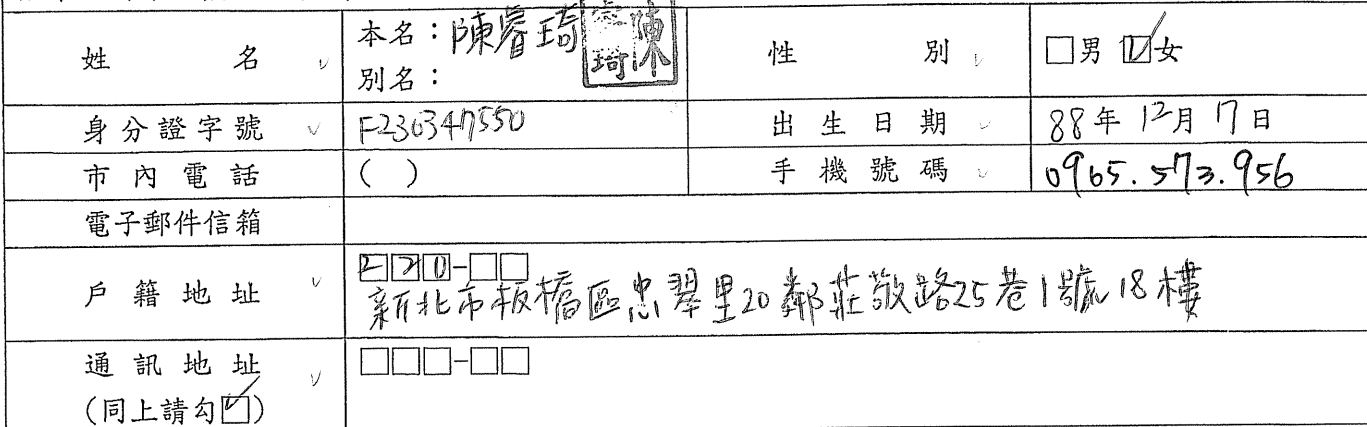 姓名 本名：陳睿琦
別名：
陳睿琦
性別 □男 ☑女
身分證字號 F230347550
出生日期 88年12月17日
市內電話 ( )
手機號碼 0965.573.956
電子郵件信箱
戶籍地址 220-□□
新北市板橋區忠翠里20鄰莊敬路25巷1號18樓
通訊地址 □□□-□□
(同上請勾☑)